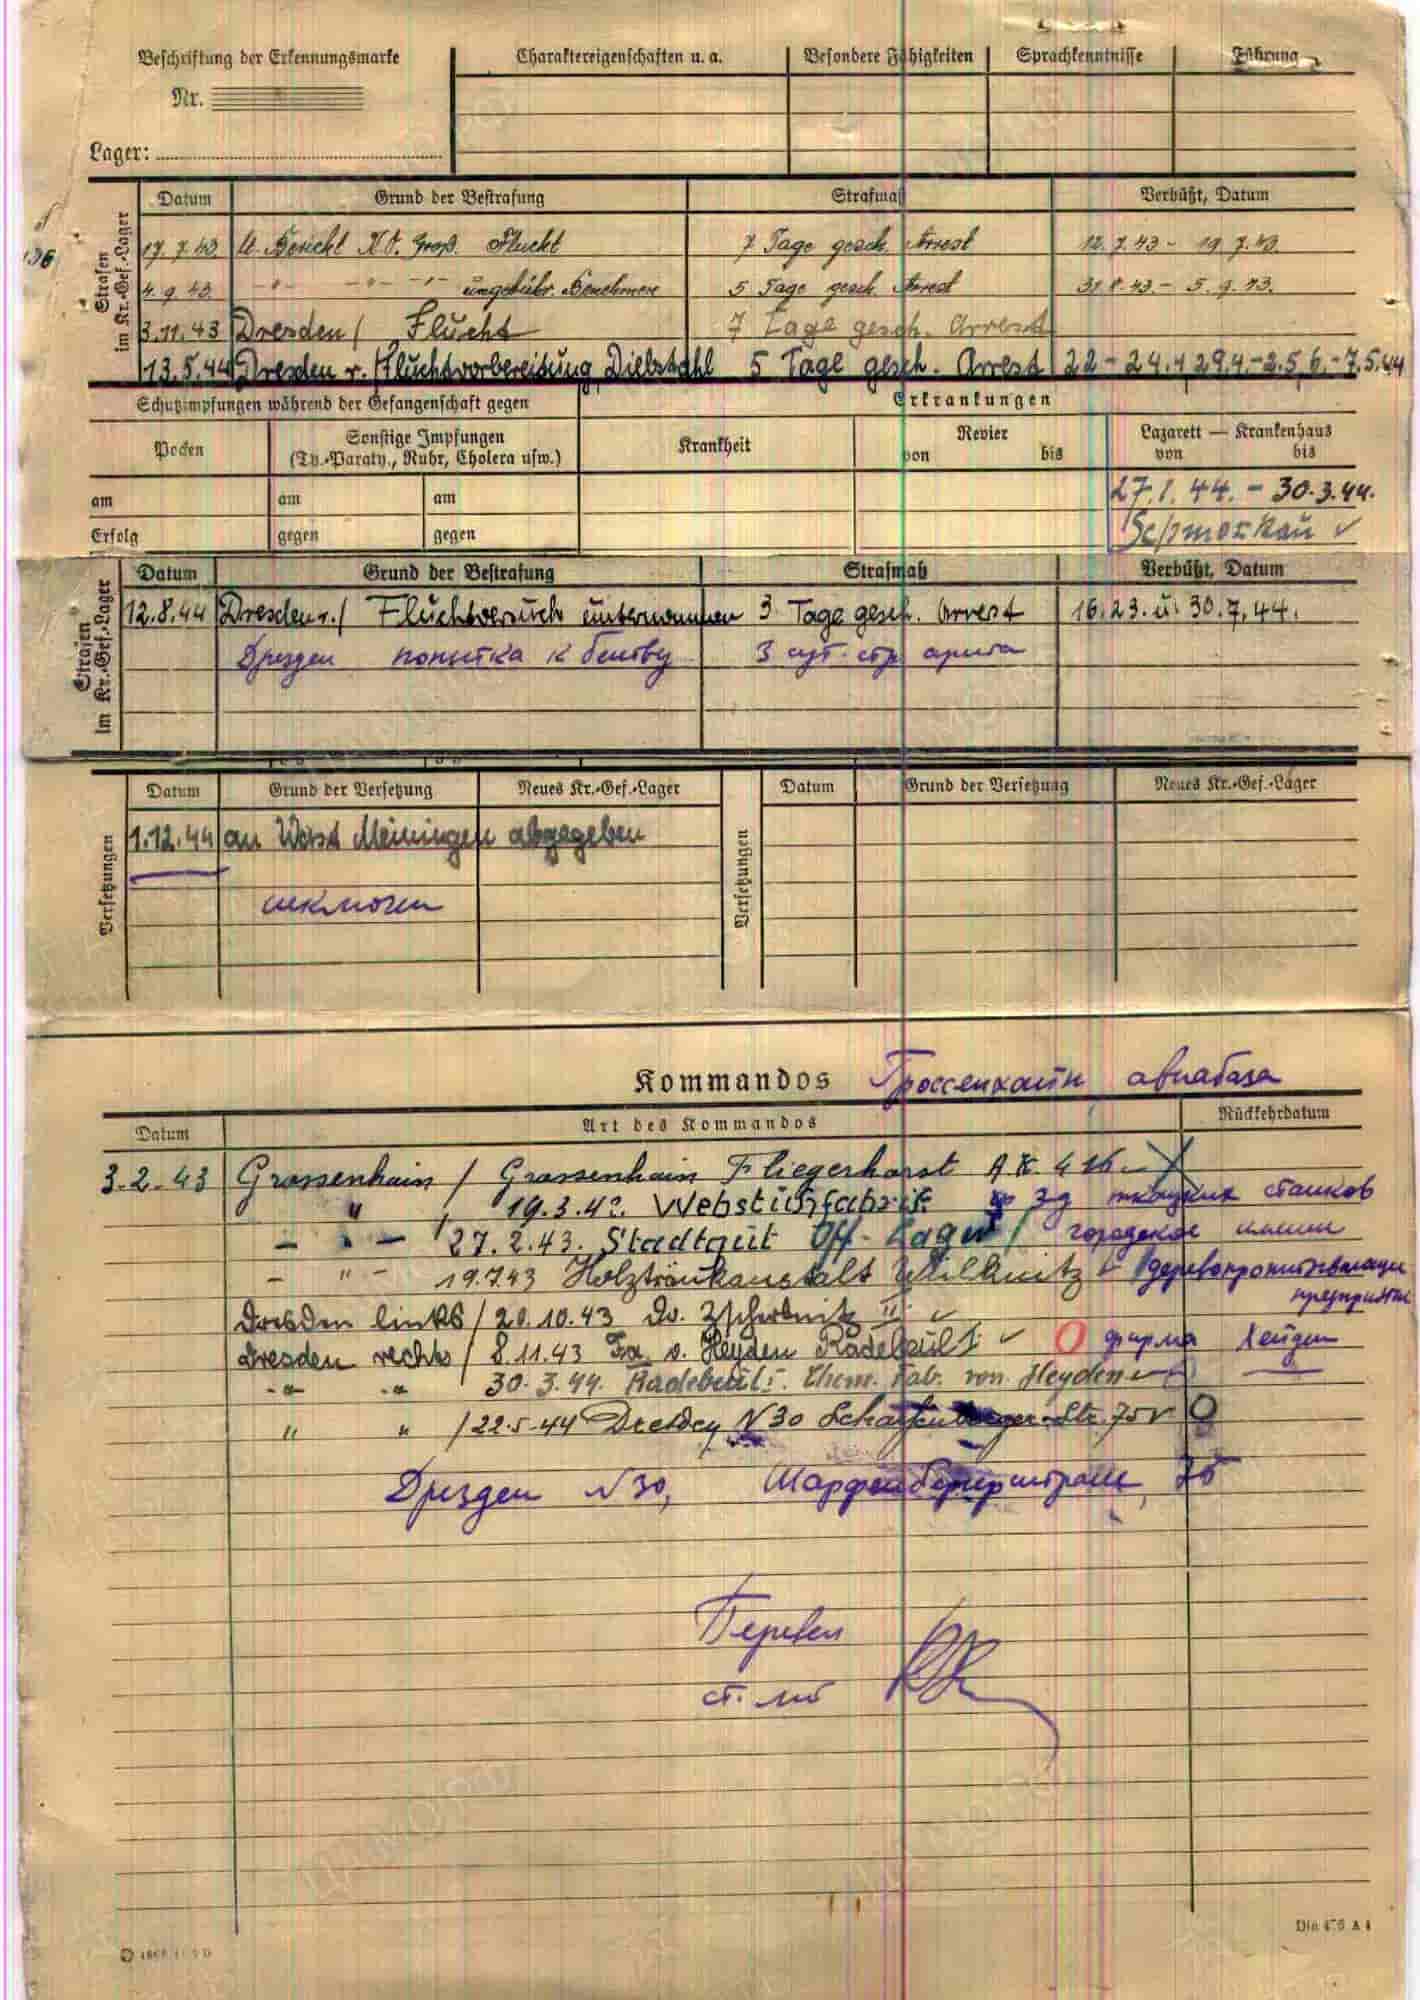 Beschriftung der Erkennungsmarke
Nr.
Lager:
Charaktereigenschaften u. a.
Besondere Fähigkeiten
Sprachkenntnisse
Führung
Strafen im Kr.-Gef.-Lager
Datum Grund der Bestrafung Strafmaß Verbüßt, Datum
17.7.43. Bericht Flucht 7 Tage gesch. Arrest 12.7.43 - 19.7.43.
4.9.43. - " - - " - - " - ungebühr. Benehmen 5 Tage gesch. Arrest 31.8.43. - 5.9.43.
3.11.43 Dresden / Flucht 7 Tage gesch. Arrest
13.5.44 Dresden r. / Fluchtvorbereitung, Diebstahl 5 Tage gesch. Arrest 22 - 24.4, 29.4. - 2.5, 6. - 7.5.44
Schutzimpfungen während der Gefangenschaft gegen
Erkrankungen
Pocken
Sonstige Impfungen
(Ty.-Paraty., Ruhr, Cholera usw.)
Krankheit
Revier
von bis
Lazarett — Krankenhaus
von bis
am am am
27.1.44. - 30.3.44.
Erfolg gegen gegen
Schmorkau ✓
Strafen im Kr.-Gef.-Lager
Datum Grund der Bestrafung Strafmaß Verbüßt, Datum
12.8.44 Dresden r. / Fluchtversuch unternommen 3 Tage gesch. Arrest 16. 23. u. 30.7.44.
Дрезден попытка к бегству 3 сут. стр ареста
Versetzungen
Datum Grund der Versetzung Neues Kr.-Gef.-Lager
1.12.44 an Wast Meiningen abgegeben
Versetzungen
Datum Grund der Versetzung Neues Kr.-Gef.-Lager
Kommandos Гроссенхайн авиабаза
Datum Art des Kommandos Rückkehrdatum
3.2.43 Grossenhain / Grossenhain Fliegerhorst A.K. 416
" 19.3.43. Webstuhlfabrik з-д ткацких станков
- " - 27.2.43. Stadtgut Off-Lager / городское имение
- " - 19.7.43 Holztränkanstalt Wülknitz - деревопропитывающее
предприятие
Dresden links / 20.10.43 Dr. Zschertnitz II ✓
Dresden rechts / 8.11.43 Fa. v. Heyden Radebeul I ✓ О фирма Хейден
- " - " 30.3.44. Radebeul I. Chem. Fab. von Heyden
" " / 22.5.44 Dresden N 30 Scharfenberger-Str. 75 ✓
Дрезден N 30, Шарфенбергерштрасе, 75
Перевел
ст. л-т
Din 476 A 4